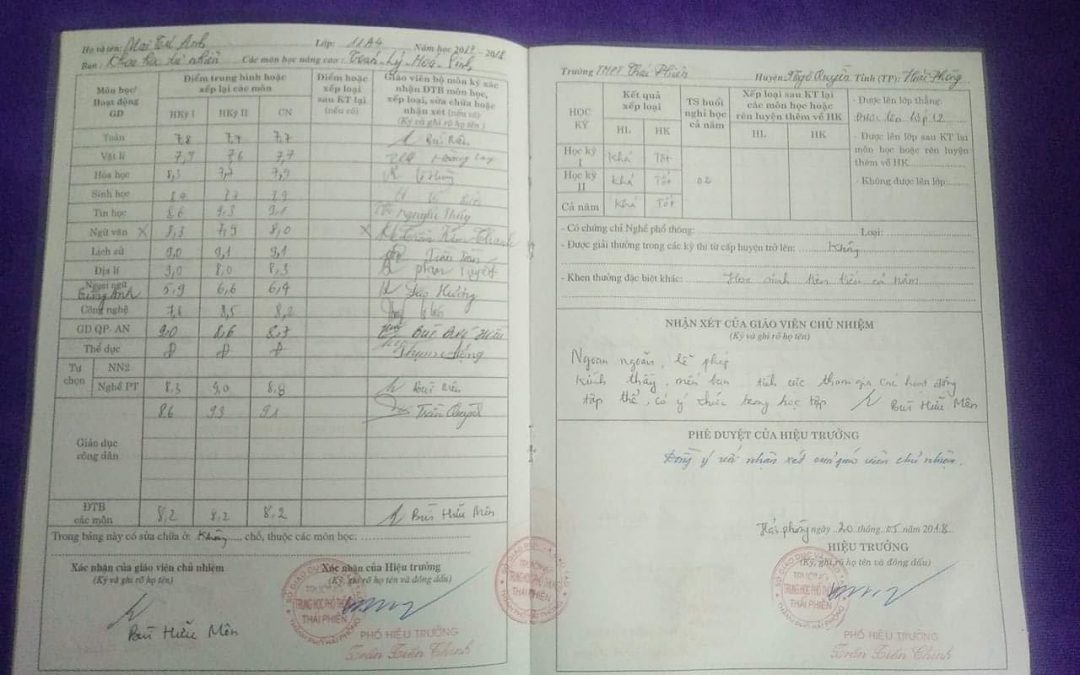 Họ và tên: Mai Tú Anh Lớp: 11A4 Năm học 2017 - 2018
Ban: Khoa học tự nhiên Các môn học nâng cao: Toán - Lý - Hoá - Sinh
Môn học/ Hoạt động GD
Điểm trung bình hoặc xếp loại các môn
HKỳ I HKỳ II CN
Điểm hoặc xếp loại sau KT lại (nếu có)
Giáo viên bộ môn ký xác nhận ĐTB môn học, xếp loại, sửa chữa hoặc nhận xét (nếu có)
(Ký và ghi rõ họ tên)
Toán 7,8 7,7 7,7
Vật lí 7,9 7,6 7,7 Hoàng
Hóa học 8,3 7,7 7,9
Sinh học
Tin học 8,6 9,3 9,1 Nguyễn Thúy
Ngữ văn X 8,3 7,9 8,0 X Trần Kim Thanh
Lịch sử 9,0 9,1 9,1
Địa lí 9,0 8,0 8,3 Phan Tuyết
Ngoại ngữ Tiếng Anh 5,9 6,6 6,4 Hương
Công nghệ 8,5 8,2
GD QP- AN 9,0 8,6 8,7 Bùi
Thể dục Đ Đ Đ
Tự chọn
NN2
Nghề PT 8,3 9,0 8,8
Giáo dục công dân 8,6 9,3 9,1 Trần Quyên
ĐTB các môn 8,2 8,2 8,2 Bùi Hữu Môn
Trong bảng này có sửa chữa ở: Không chỗ, thuộc các môn học:
Xác nhận của giáo viên chủ nhiệm
(Ký và ghi rõ họ tên)
Bùi Hữu Môn
Xác nhận của Hiệu trưởng
(Ký, ghi rõ họ tên và đóng dấu)
TRƯỜNG
TRUNG HỌC PHỔ THÔNG
THÁI PHIÊN
PHÓ HIỆU TRƯỞNG
Trần Tiến Chinh
Trường THPT Thái Phiên Huyện: Ngô Quyền Tỉnh (TP): Hải Phòng
HỌC KỲ
Kết quả xếp loại
HL HK
TS buổi nghỉ học cả năm
Xếp loại sau KT lại các môn học hoặc rèn luyện thêm về HK
HL HK
- Được lên lớp thẳng:
Được lên lớp 12
- Được lên lớp sau KT lại môn học hoặc rèn luyện thêm về HK
- Không được lên lớp:
Học kỳ I Khá Tốt
Học kỳ II Khá Tốt 02
Cả năm Khá Tốt
- Có chứng chỉ Nghề phổ thông: Loại:
- Được giải thưởng trong các kỳ thi từ cấp huyện trở lên: Không
- Khen thưởng đặc biệt khác: Học sinh tiên tiến cả năm
NHẬN XÉT CỦA GIÁO VIÊN CHỦ NHIỆM
(Ký và ghi rõ họ tên)
Ngoan ngoãn, lễ phép
Kính thầy, mến bạn tích cực tham gia các hoạt động
tập thể, có ý thức trong học tập Bùi Hữu Môn
PHÊ DUYỆT CỦA HIỆU TRƯỞNG
Đồng ý với nhận xét của giáo viên chủ nhiệm.
Hải phòng ngày 20 tháng 05 năm 2018
HIỆU TRƯỞNG
(Ký, ghi rõ họ tên và đóng dấu)
TRƯỜNG
TRUNG HỌC PHỔ THÔNG
THÁI PHIÊN
PHÓ HIỆU TRƯỞNG
Trần Tiến Chinh